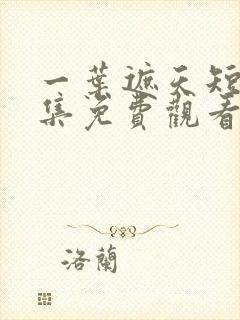 一葉遮天短
集免費觀看
洛蘭